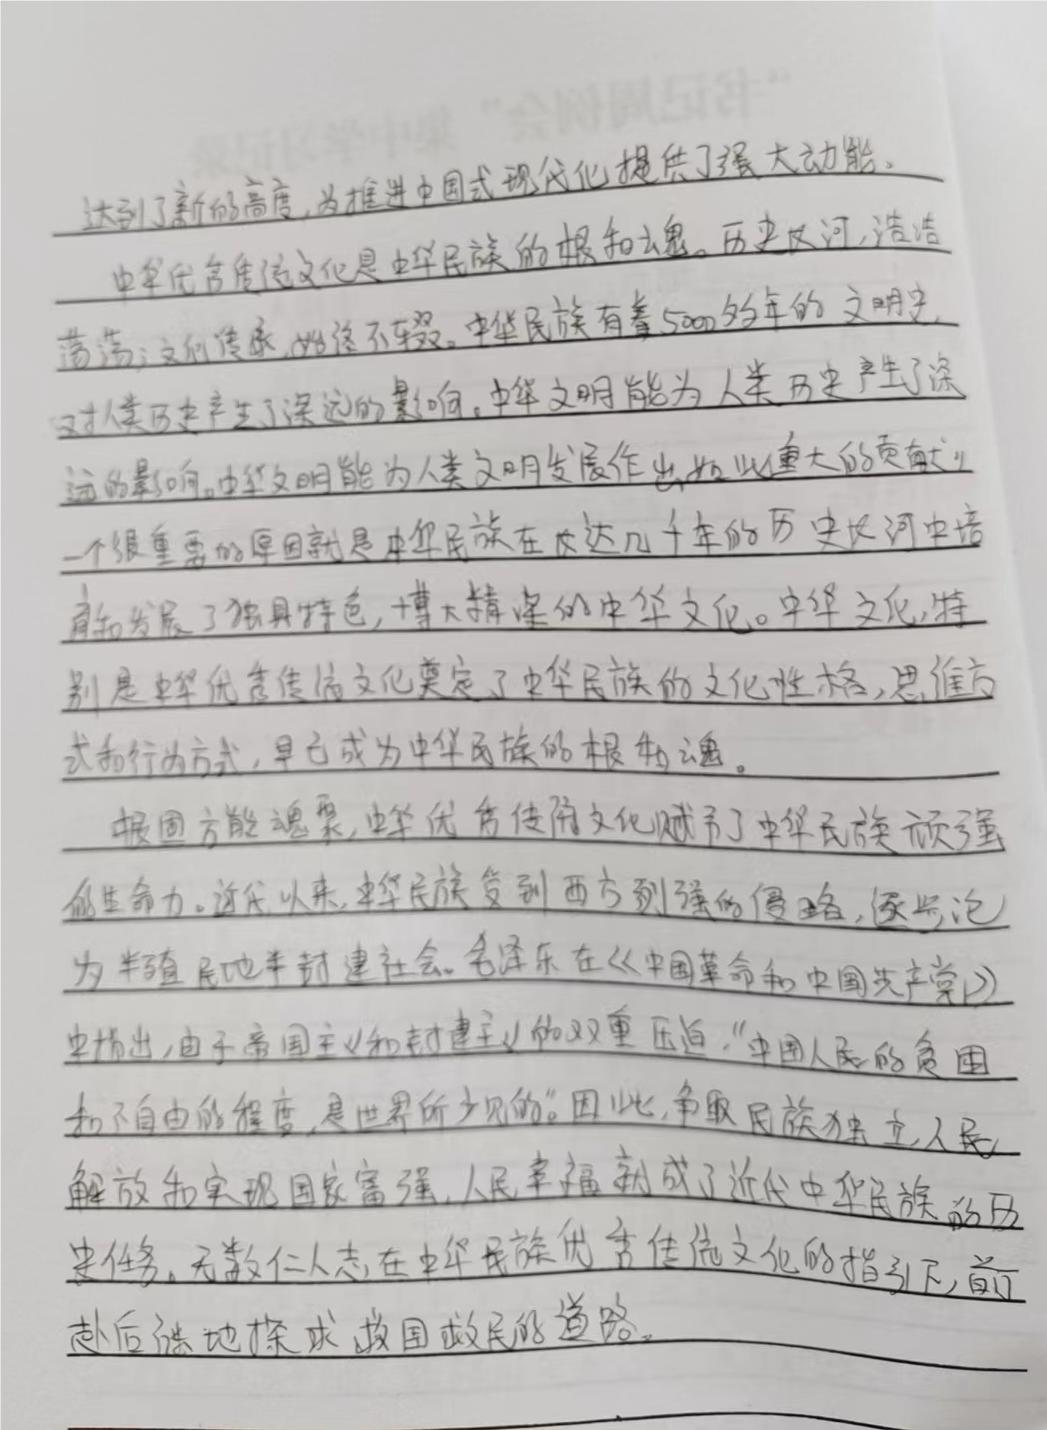 达到了新的高度，为推进中国式现代化提供了强大动能。
中华优秀传统文化是中华民族的根和魂。历史长河，浩浩
荡荡；文化传承，始终不辍。中华民族有着5000多年的文明史，
对人类历史产生了深远的影响。中华文明能为人类历史产生了深
远的影响。中华文明能为人类文明发展作出如此重大的贡献，
一个很重要的原因就是中华民族在长达几千年的历史长河中培
育和发展了独具特色，博大精深的中华文化。中华文化，特
别是中华优秀传统文化奠定了中华民族的文化性格，思维方
式和行为方式，早已成为中华民族的根和魂。
根固方能魂聚，中华优秀传统文化赋予了中华民族顽强
的生命力。近代以来，中华民族受到西方列强的侵略，逐步沦
为半殖民地半封建社会。毛泽东在《中国革命和中国共产党》
中指出，由于帝国主义和封建主义的双重压迫，“中国人民的贫困
和不自由的程度，是世界所少见的”。因此，争取民族独立，人民
解放和实现国家富强，人民幸福就成了近代中华民族的历
史任务。无数仁人志在中华民族优秀传统文化的指引下，前
赴后继地探求救国救民的道路。
“书记周例会”集中学习记录